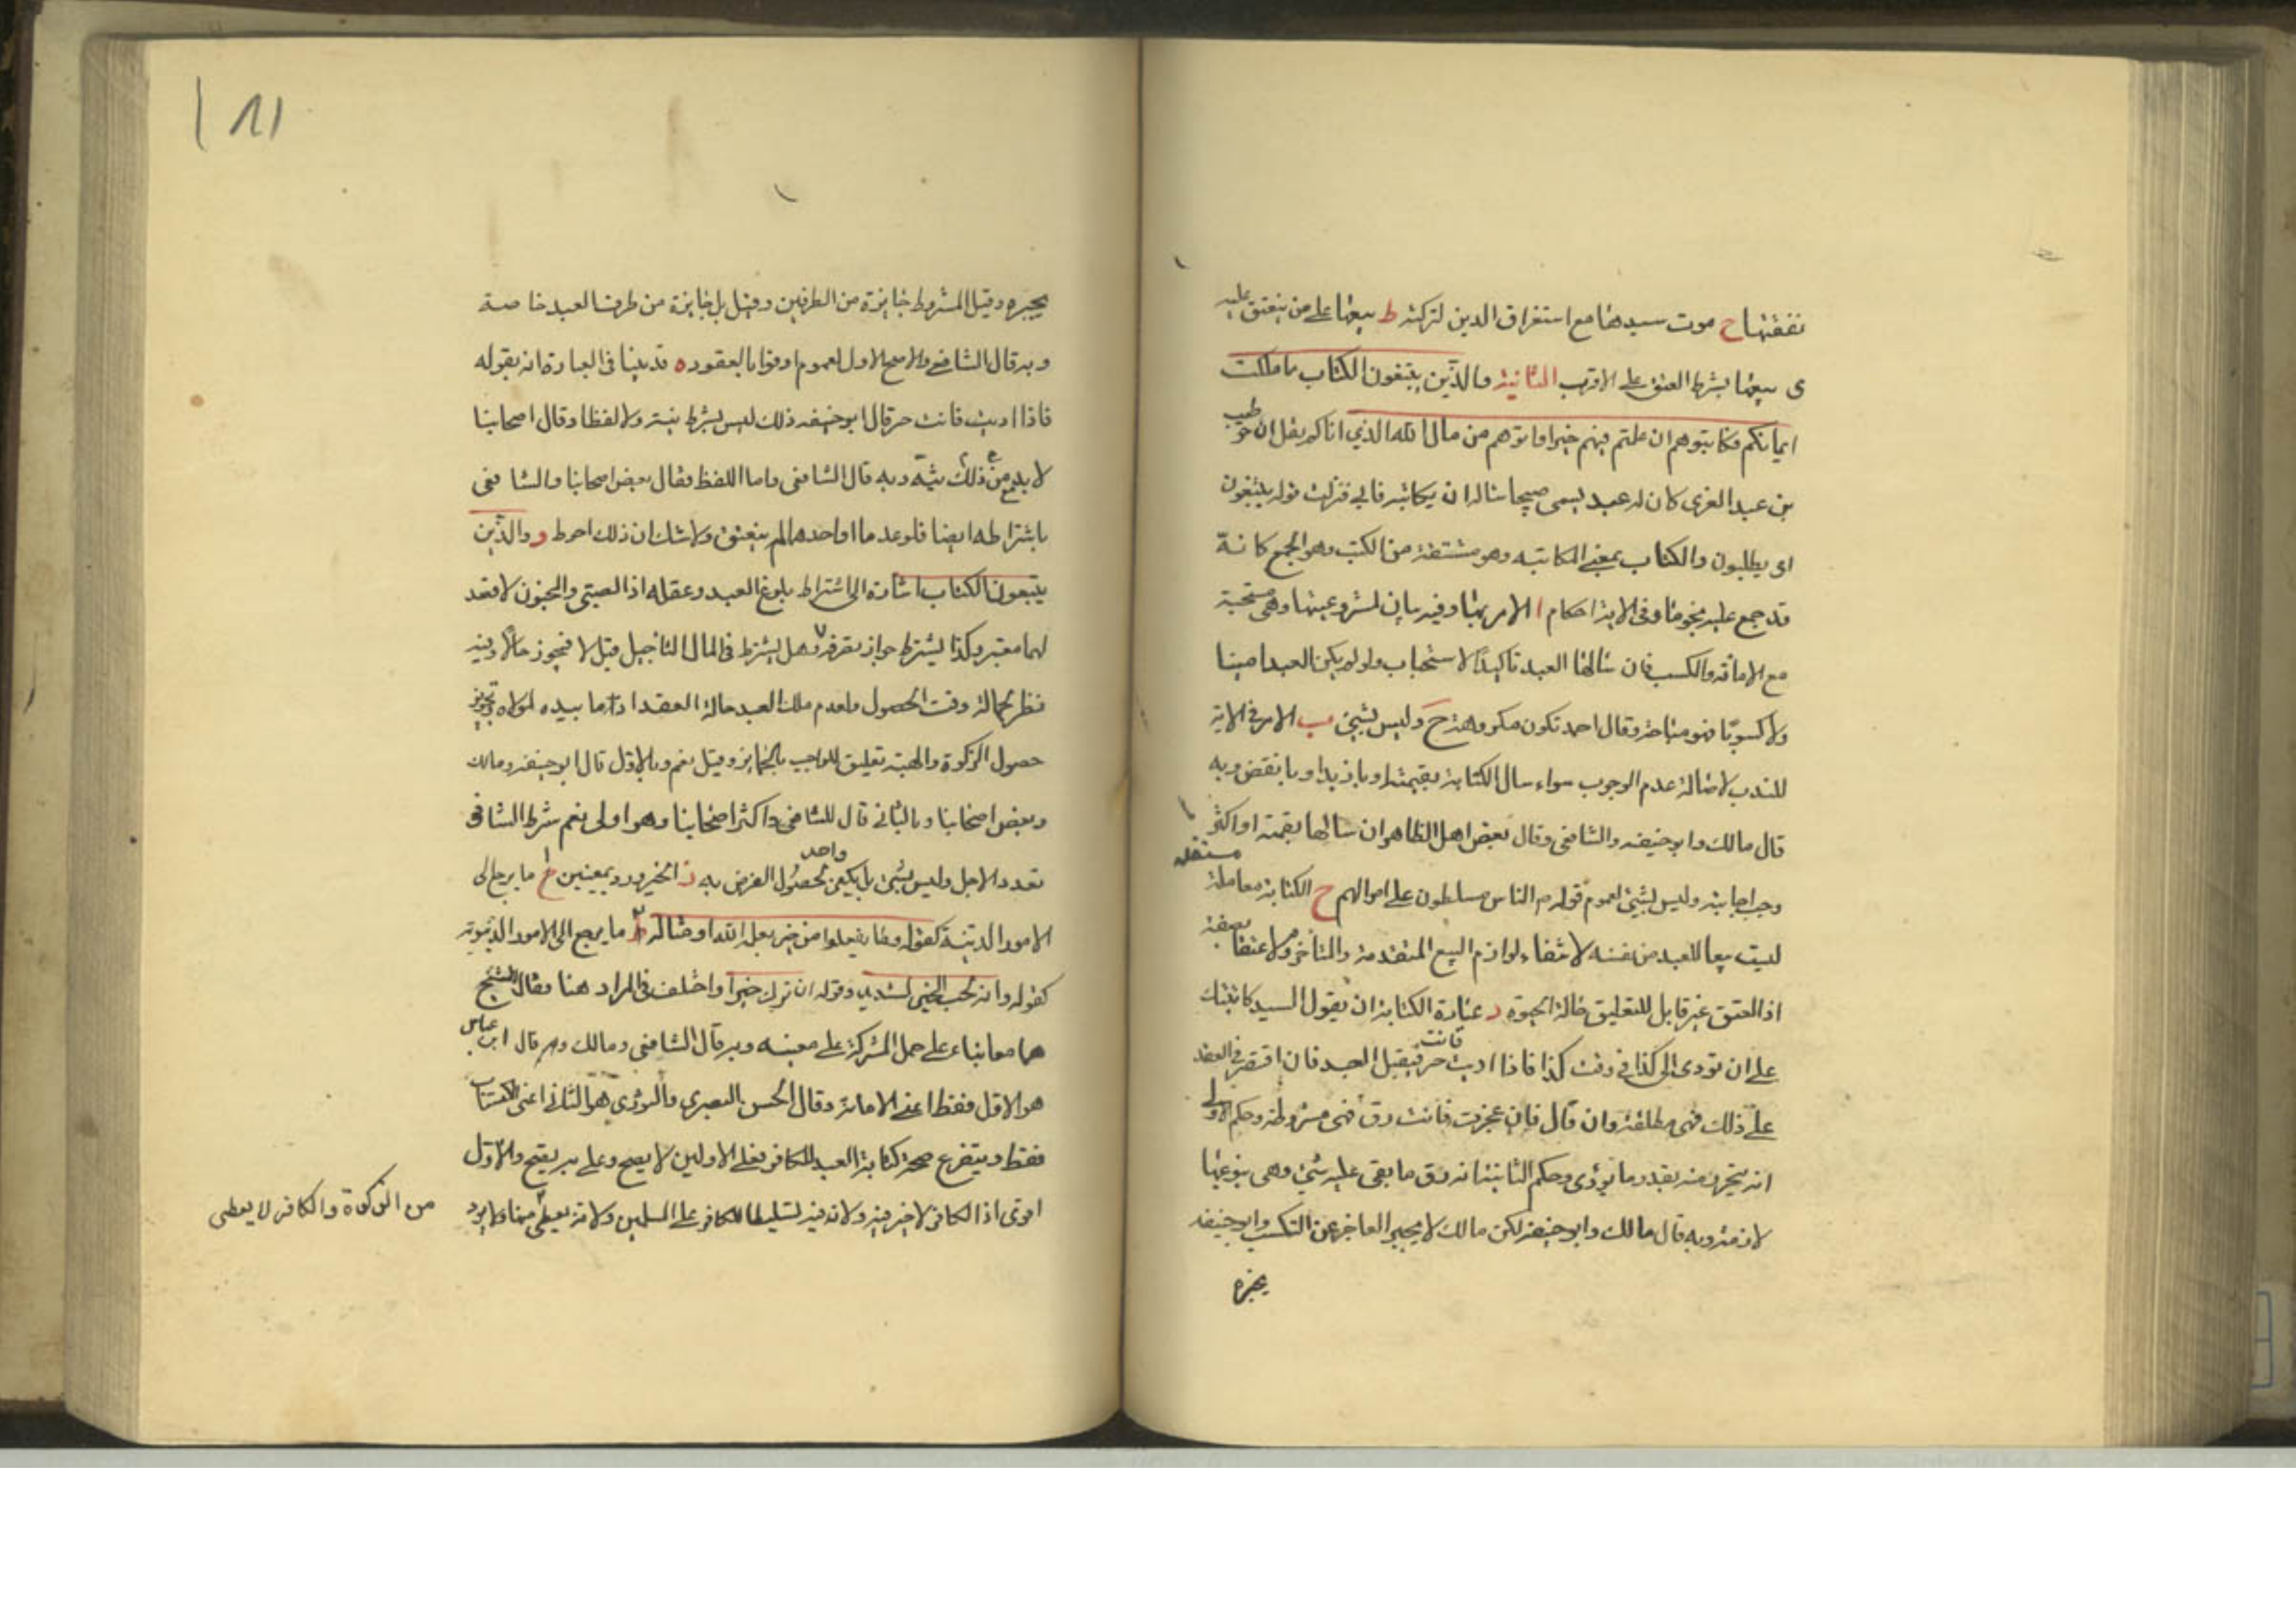 نفقتها ح موت سيدها مع استغراق الدين لتركته ط بيعها على من ينعتق عليه
ى بيعها بشرط العتق على الاقرب الثانية والذين يبتغون الكتاب مما ملكت
ايمانكم فكاتبوهم ان علمتم فيهم خيرا واتوهم من مال الله الذي اتاكم نقل ان حويطب
بن عبد العزى كان له عبد يسمى صبيحا ساله ان يكاتبه فابى فنزلت قوله يبتغون
اى يطلبون والكتاب بمعنى المكاتبه وهو مشتقة من الكتب وهو الجمع كانه
قد جمع عليه نجومها وفى الاية احكام ا الامر بها وفيه بيان لمشروعيتها وهى مستحبة
مع الامانة والكسب فان سالها العبد تاكيد الاستحباب ولو لم يكن العبد امينا
ولا كسوبا فهو مباحة وقال احمد تكون مكروهة ح وليس بشيئ ب الامر فى الاية
للندب لاصالة عدم الوجوب سواء سال الكتابة بقيمته او بازيد او بانقص وبه
قال مالك وابو حنيفه والشافعى وقال بعض اهل الظاهر ان سالها بقيمته او اكثر
وجب اجابته وليس بشيئ لعموم قوله ص الناس مسلطون على اموالهم ح الكتابة معاملة مستقله
ليست بيعا للعبد من نفسه لانتفاء لوازم البيع المتقدمة والمتاخرة ولا عتقا بصفة
اذ العتق غير قابل للتعليق حالة الحيوة د عبارة الكتابة ان يقول السيد كاتبتك
على ان تودى الى كذا فى وقت كذا فاذا اديت فانت حر فيقبل العبد فان اقتصر فى العقد
على ذلك فهى مطلقة وان قال فان عجزت فانت رق فهى مشروطة وحكم الاولى
انه يتحرر منه بقدر ما يؤدى وحكم الثانية انه رق ما بقى عليه شيئ وهى بنوعيها
لازمة وبه قال مالك وابو حنيفه لكن مالك لا يجبر العاجز عن التكسب وابو حنيفه
يجبره
١٨١
يجبره وقيل المشروط جايزة من الطرفين وقيل بل جايزة من طرف العبد خاصة
وبه قال الشافعي والاصح الاول لعموم اوفوا بالعقود ه قد بينا فى العبارة انه بقوله
فاذا اديت فانت حر قال ابو حنيفه ذلك ليس بشرط نية ولا لفظا وقال اصحابنا
لا بد من ذلك نيّة وبه قال الشافعى واما اللفظ فقال بعض اصحابنا والشافعى
باشتراطه ايضا فلو عدما او احدهما لم ينعتق ولا شك ان ذلك احوط و والذين
يبتغون الكتاب اشارة الى اشتراط بلوغ العبد وعقله اذ الصبى والمجنون لا قصد
لهما معتبر وكذا يشترط جواز تصرفه وهل يشترط فى المال التاجيل قيل لا فيجوز حالا وفيه
نظر لجهالة وقت الحصول ولعدم ملك العبد حالة العقد اذ ما بيده لمولاه وتجويز
حصول الزكوة والهبة تعليق للواجب بالجايز وقيل نعم وبالاول قال ابو حنيفه ومالك
وبعض اصحابنا وبالثانى قال الشافعى واكثر اصحابنا وهو اولى نعم شرط الشافعى
تعدد الاجل وليس بشئ بل يكفى واحد لحصول الغرض به ز الخير ورد بمعنيين ا ما يرجع الى
الامور الدينية كقوله وما يفعلوا من خير يعلمه الله او مثاله ٢ ما يرجع الى الامور الدنيوية
كقوله وانه لحب الخير لشديد وقوله ان ترك خيرا واختلف فى المراد هنا فقال الشيخ
هما معا بناء على حمل المشترك على معنييه وبه قال الشافعى ومالك وقال ابن عباس
هو الاول فقط اعنى الامانة وقال الحسن البصرى والثورى هو الثانى اعنى الاكتساب
فقط ويتفرع صحة كتابة العبد الكافر فعلى الاولين لا يصح وعلى يصح والاول
اقوى اذ الكافر لا خير فيه ولانه فيه تسليطا للكافر على المسلمين ولانه يعطى
من الزكوة والكافر لا يعطى